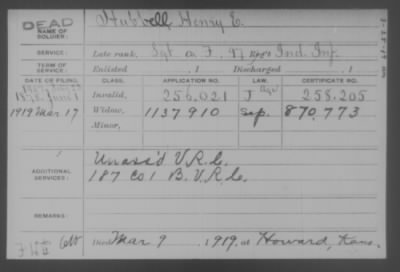 DEAD
NAME OF SOLDIER: Hubbell, Henry E.
SERVICE: Late rank, Sgt Co. F, 97 Reg't Ind. Inf.
TERM OF SERVICE: Enlisted , 1 Discharged , 1
DATE OF FILING. CLASS. APPLICATION NO. CERTIFICATE NO.
1878, June 1 Invalid, 256.021 J 258.205
1919 Mar 17 Widow, 1137910 Sep. 870.773
Minor,
ADDITIONAL SERVICES: Unass'd V.R.C.
187 Co 1 B. V.R.C.
REMARKS:
Died Mar 9 , 1919, at Howard, Kans.